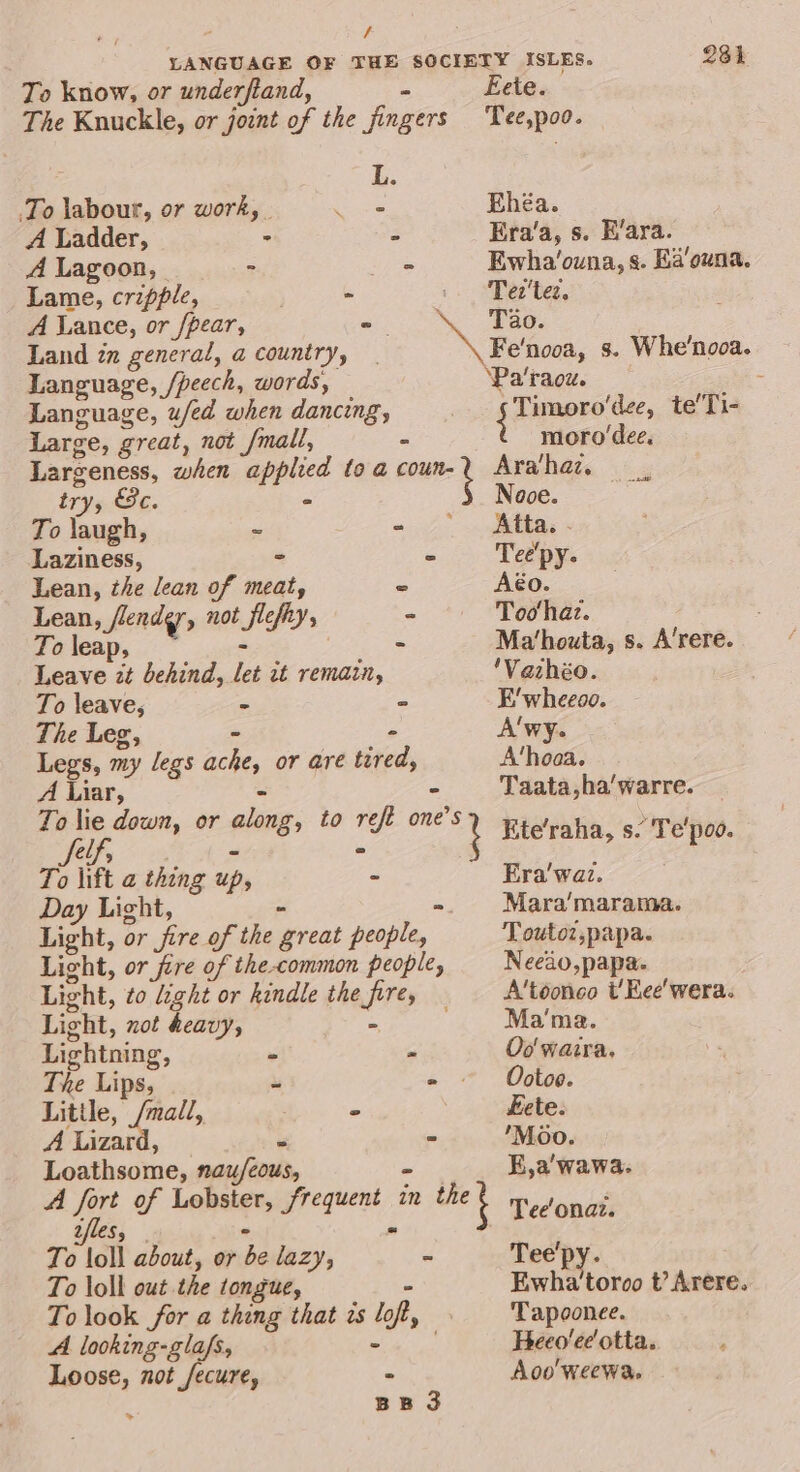 LANGUAGE OF THE SOCIETY ISLES. 281
To know, or underſtand, - Eete.
The Knuckle, or joint of the fingers Tee,poo.
L.
To labour, or work, - Ehéa.
A Ladder, - - Era'a, s. E'ara.
A Lagoon, - - Ewha'ouna, s. Eä'ouna.
Lame, cripple, - Tei'tei.
A Lance, or ſpear, - Täo.
Land in general, a country, Fe'nooa, s. Whe'nooa.
Language, ſpeech, words, Pa'raou.
Language, uſed when dancing, { Timoro'dee, te'Ti-
Large, great, not ſmall, - moro'dee.
Largeness, when applied to a coun- } Ara'hai.
try, &c. - } Nooe.
To laugh, - - Atta.
Laziness, - - Tee'py.
Lean, the lean of meat, - Aéo.
Lean, ſlender, not fleſhy, - Too'hai.
To leap, - - Ma'houta, s. A'rere.
Leave it behind, let it remain, 'Vaihéo.
To leave, - - E'wheeoo.
The Leg, - - A'wy.
Legs, my legs ache, or are tired, A'hooa.
A Liar, - - Taata,ha'warre.
To lie down, or along, to reſt one's } Ete'raha, s. Te'poo.
ſelf, - -
To lift a thing up, - Era'wai.
Day Light, - - Mara'marama.
Light, or fire of the great people, Toutoi,papa.
Light, or fire of the common people, Neeäo,papa.
Light, to light or kindle the fire, A'toonoo t'Eee'wera.
Light, not heavy, - Ma'ma.
Lightning, - - Oo'waira.
The Lips, - - Ootoo.
Little, ſmall, - Eete.
A Lizard, - - 'Moo.
Loathsome, nauſeous, - E,a'wawa.
A ſort of Lobster, frequent in the } Tee'onai.
iſles, - -
To loll about, or be lazy, - Tee'py.
To loll out the tongue, - Ewha'toroo t'Arere.
To look for a thing that is loſt, Tapoonee.
A looking-glaſs, - Heeo'ee'otta.
Looſe, not ſecure, - Aoo'weewa.
BB 3